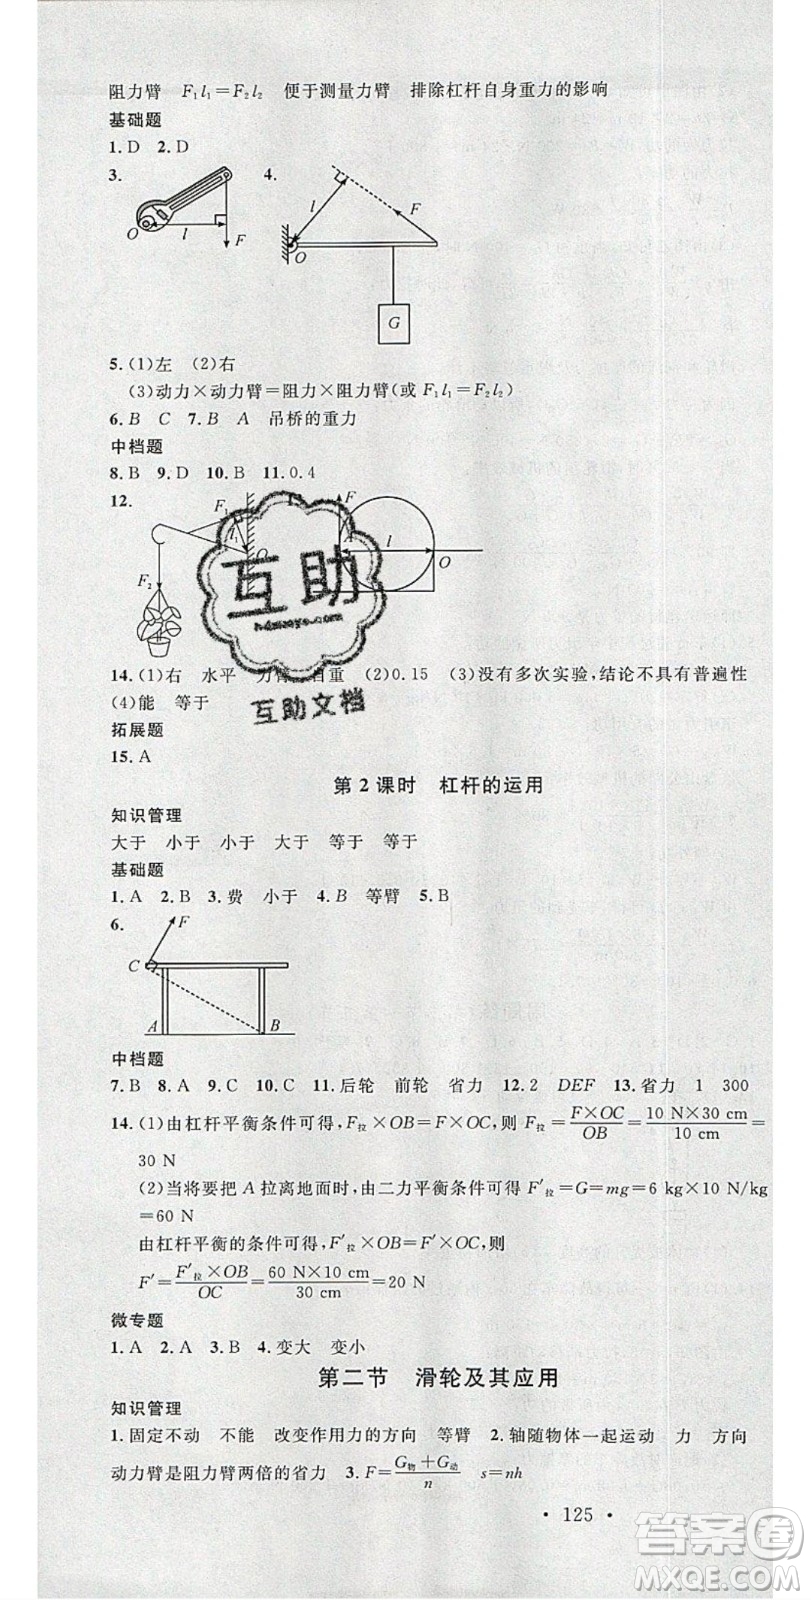 阻力臂 F₁l₁=F₂l₂ 便于测量力臂 排除杠杆自身重力的影响
基础题
1.D 2.D
3. 4.
O l F
l F O G
5.(1)左 (2)右
(3)动力×动力臂=阻力×阻力臂(或F₁l₁=F₂l₂)
6.B C 7.B A 吊桥的重力
中档题
8.B 9.D 10.B 11.0.4
12.
F₁ l₁ O F₂
F A l O
互助
互助文档
14.(1)右 水平 力臂 自重 (2)0.15 (3)没有多次实验,结论不具有普遍性
(4)能 等于
拓展题
15.A
第2课时 杠杆的运用
知识管理
大于 小于 小于 大于 等于 等于
基础题
1.A 2.B 3.费 小于 4.B 等臂 5.B
6.
F C A B
中档题
7.B 8.A 9.C 10.C 11.后轮 前轮 省力 12.2 DEF 13.省力 1 300
14.(1)由杠杆平衡条件可得,F拉×OB=F×OC,则F拉=F×OC/OB=10 N×30 cm/10 cm=
30 N
(2)当将要把A拉离地面时,由二力平衡条件可得F′拉=G=mg=6 kg×10 N/kg
=60 N
由杠杆平衡的条件可得:F′拉×OB=F′×OC,则
F′=F′拉×OB/OC=60 N×10 cm/30 cm=20 N
微专题
1.A 2.A 3.B 4.变大 变小
第二节 滑轮及其应用
知识管理
1.固定不动 不能 改变作用力的方向 等臂 2.轴随物体一起运动 力 方向
动力臂是阻力臂两倍的省力 3.F=G物+G动/n s=nh
• 125 •
答案圈
MXQE.COM